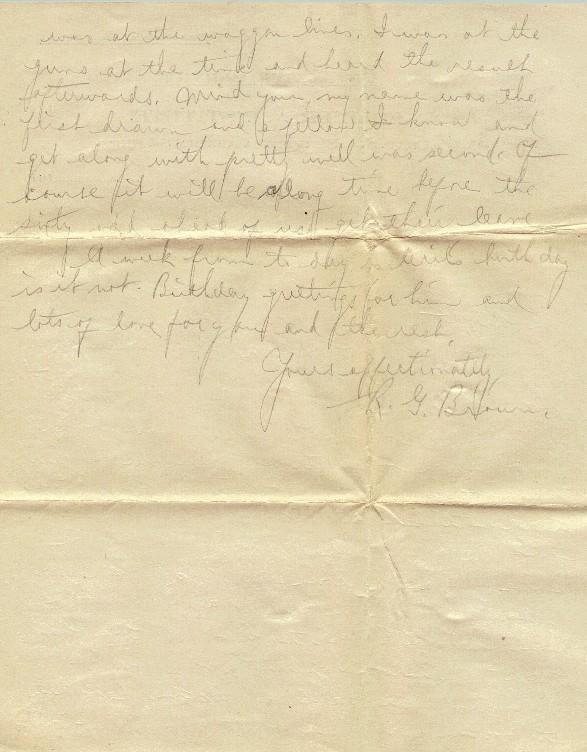 was at the waggon lines. I was at the
guns at the time and heard the result
afterwards. Mind you, my name was the
first drawn and a fellow I know and
get along with pretty well was second. Of
course it will be along time before the
sixty odd ahead of us get their leave
A week from to day is birthday
is it not. Birthday greetings for him and
lots of love for you and the rest.
Yours affectionately
R. G. Brown.